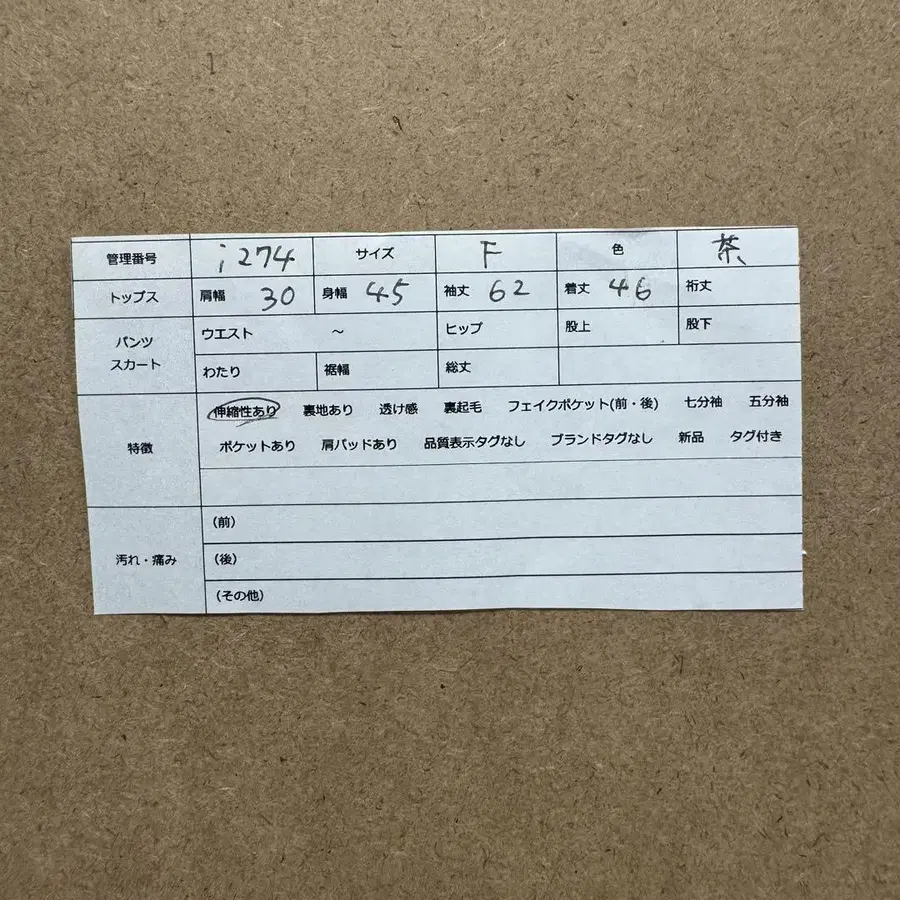 管理番号 i274 サイズ F 色 茶
トップス 肩幅 30 身幅 45 袖丈 62 着丈 46 裄丈
パンツ スカート
ウエスト ～ ヒップ 股上 股下
わたり 裾幅 総丈
特徴
伸縮性あり 裏地あり 透け感 裏起毛 フェイクポケット(前・後) 七分袖 五分袖
ポケットあり 肩パッドあり 品質表示タグなし ブランドタグなし 新品 タグ付き
汚れ・痛み
(前)
(後)
(その他)